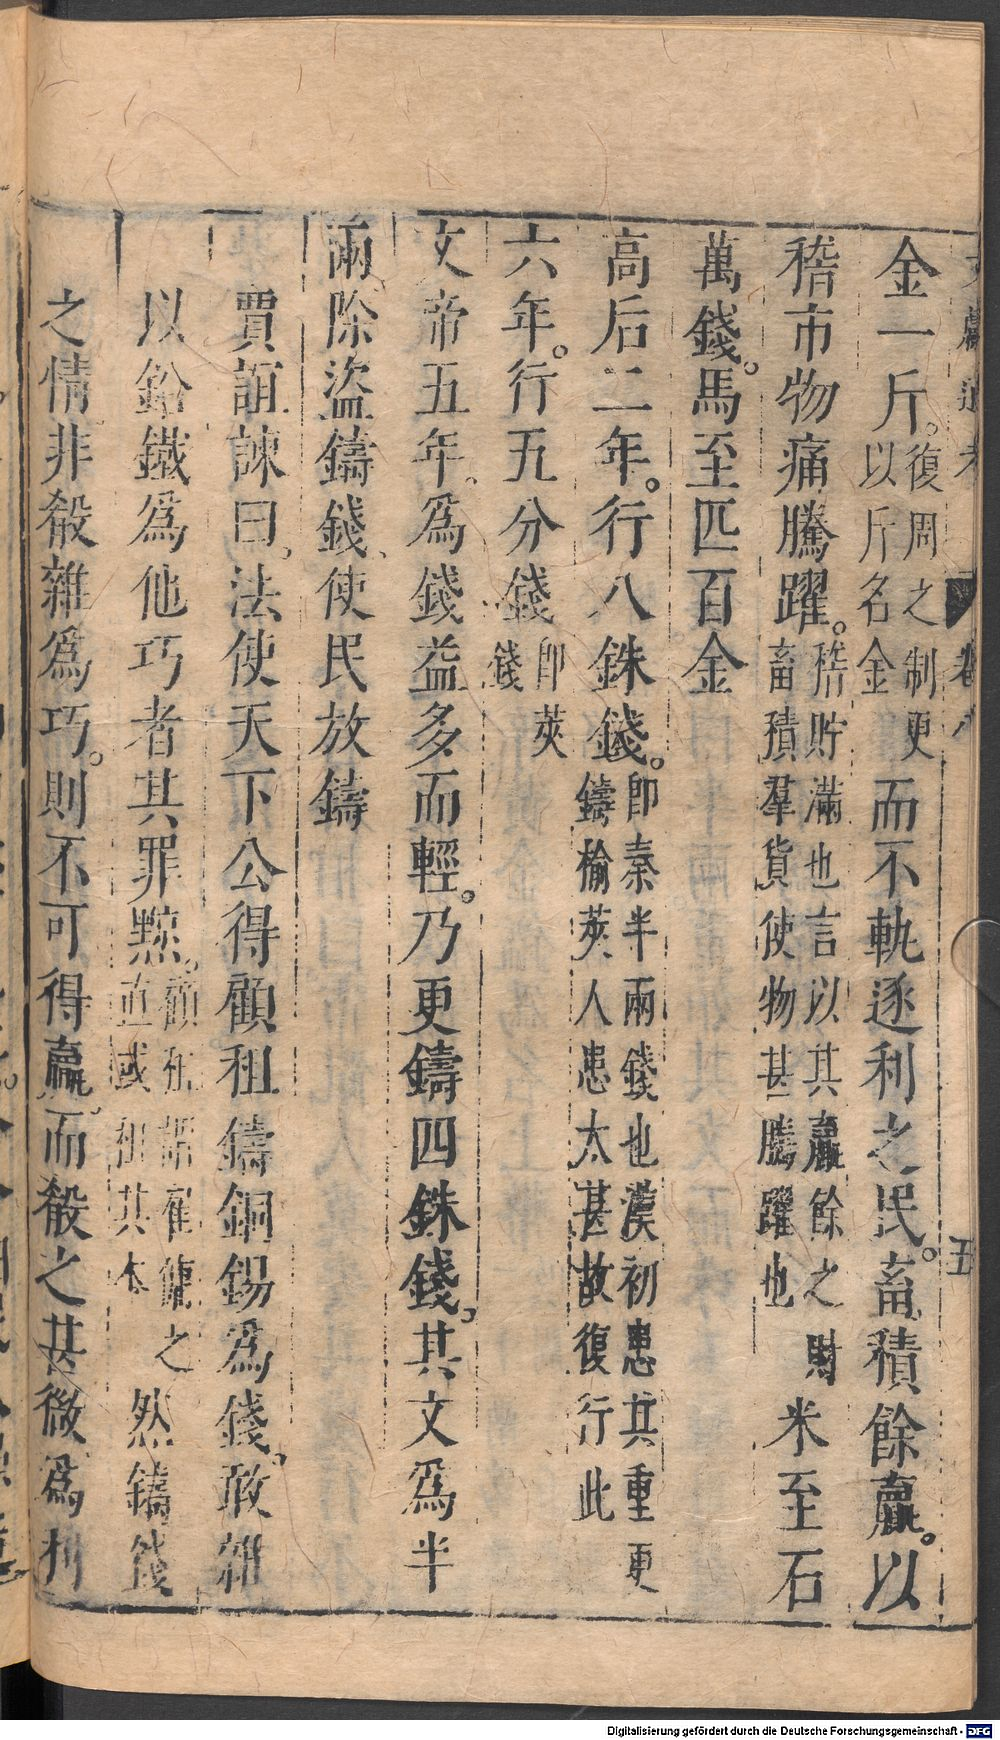 文獻通考 卷八 五
金一斤。復周之制更以斤名金而不軌逐利之民。畜積餘贏。以
稽市物痛騰躍。稽貯滿也言以其贏餘之財畜積羣貨使物甚騰躍也米至石
萬錢。馬至匹百金
高后二年。行八銖錢。即秦半兩錢也漢初患其重更鑄榆莢人患太甚故復行此
六年。行五分錢即莢錢
文帝五年。爲錢益多而輕。乃更鑄四銖錢,其文爲半
兩除盜鑄錢、使民放鑄
賈誼諫曰,法使天下公得顧租鑄銅錫爲錢。敢雜
以鉛鐵爲他巧者其罪黥。顧租謂雇傭之直或租其本然鑄錢
之情。非殽雜爲巧。則不可得贏。而殽之甚微爲利
Digitalisierung gefördert durch die Deutsche Forschungsgemeinschaft - DFG